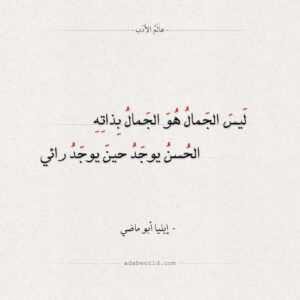 - عالَمُ الأدَب -
لَيسَ الجَمالُ هُوَ الجَمالُ بِذاتِهِ
الحُسنُ يوجَدُ حينَ يوجَدُ رائي
- إيليا أبو ماضي
adabworld.com